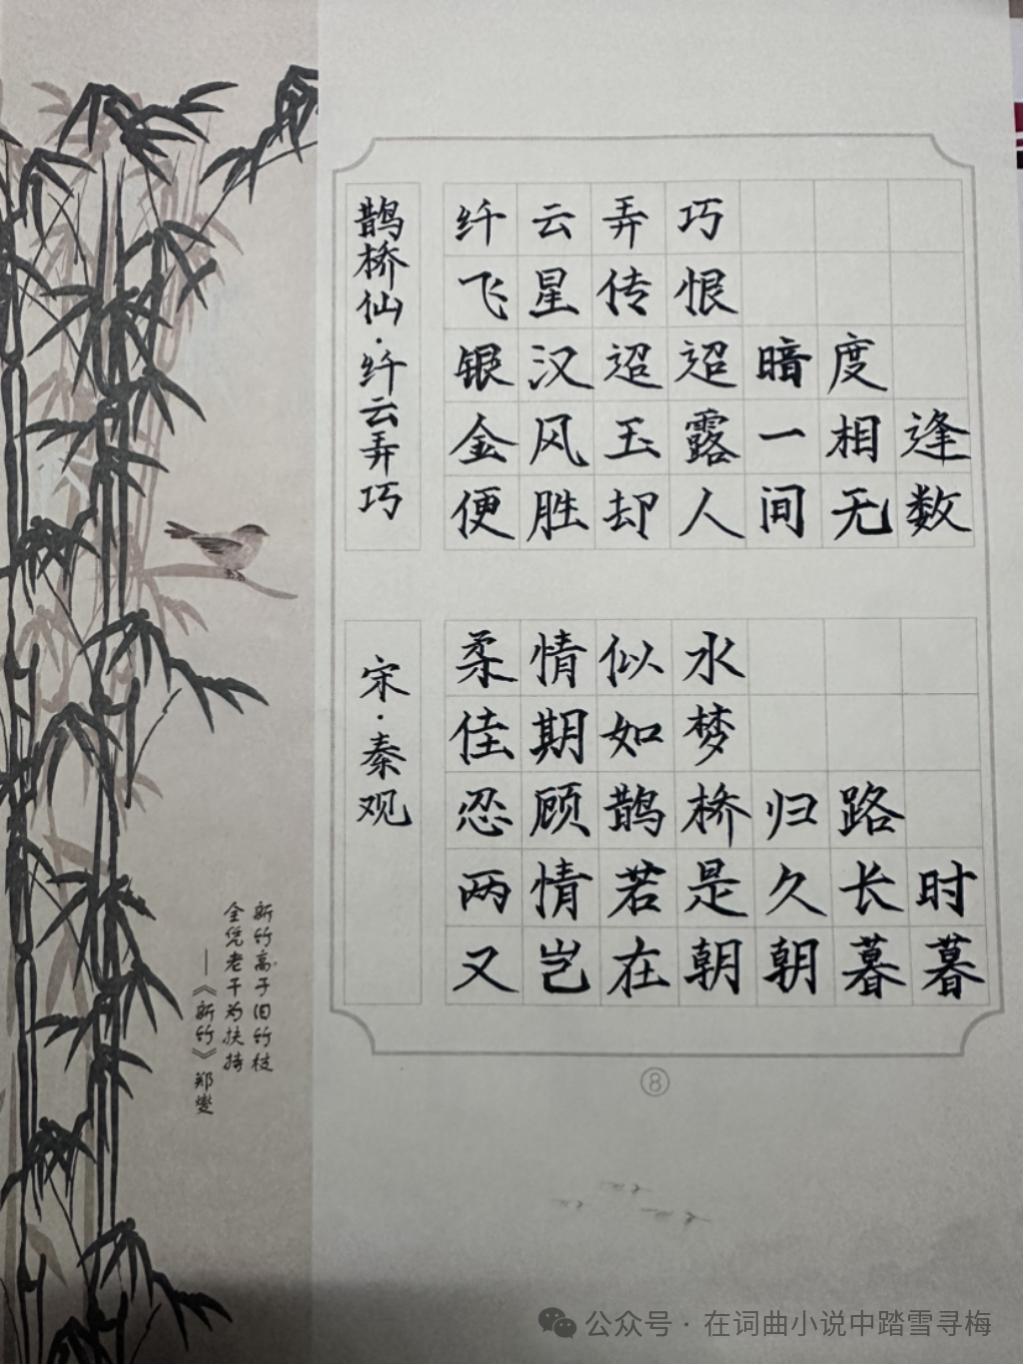 鹊桥仙·纤云弄巧
纤云弄巧
飞星传恨
银汉迢迢暗度
金风玉露一相逢
便胜却人间无数
宋·秦观
柔情似水
佳期如梦
忍顾鹊桥归路
两情若是久长时
又岂在朝朝暮暮
新竹高于旧竹枝
全凭老干为扶持
——《新竹》郑燮
⑧
公众号·在词曲小说中踏雪寻梅